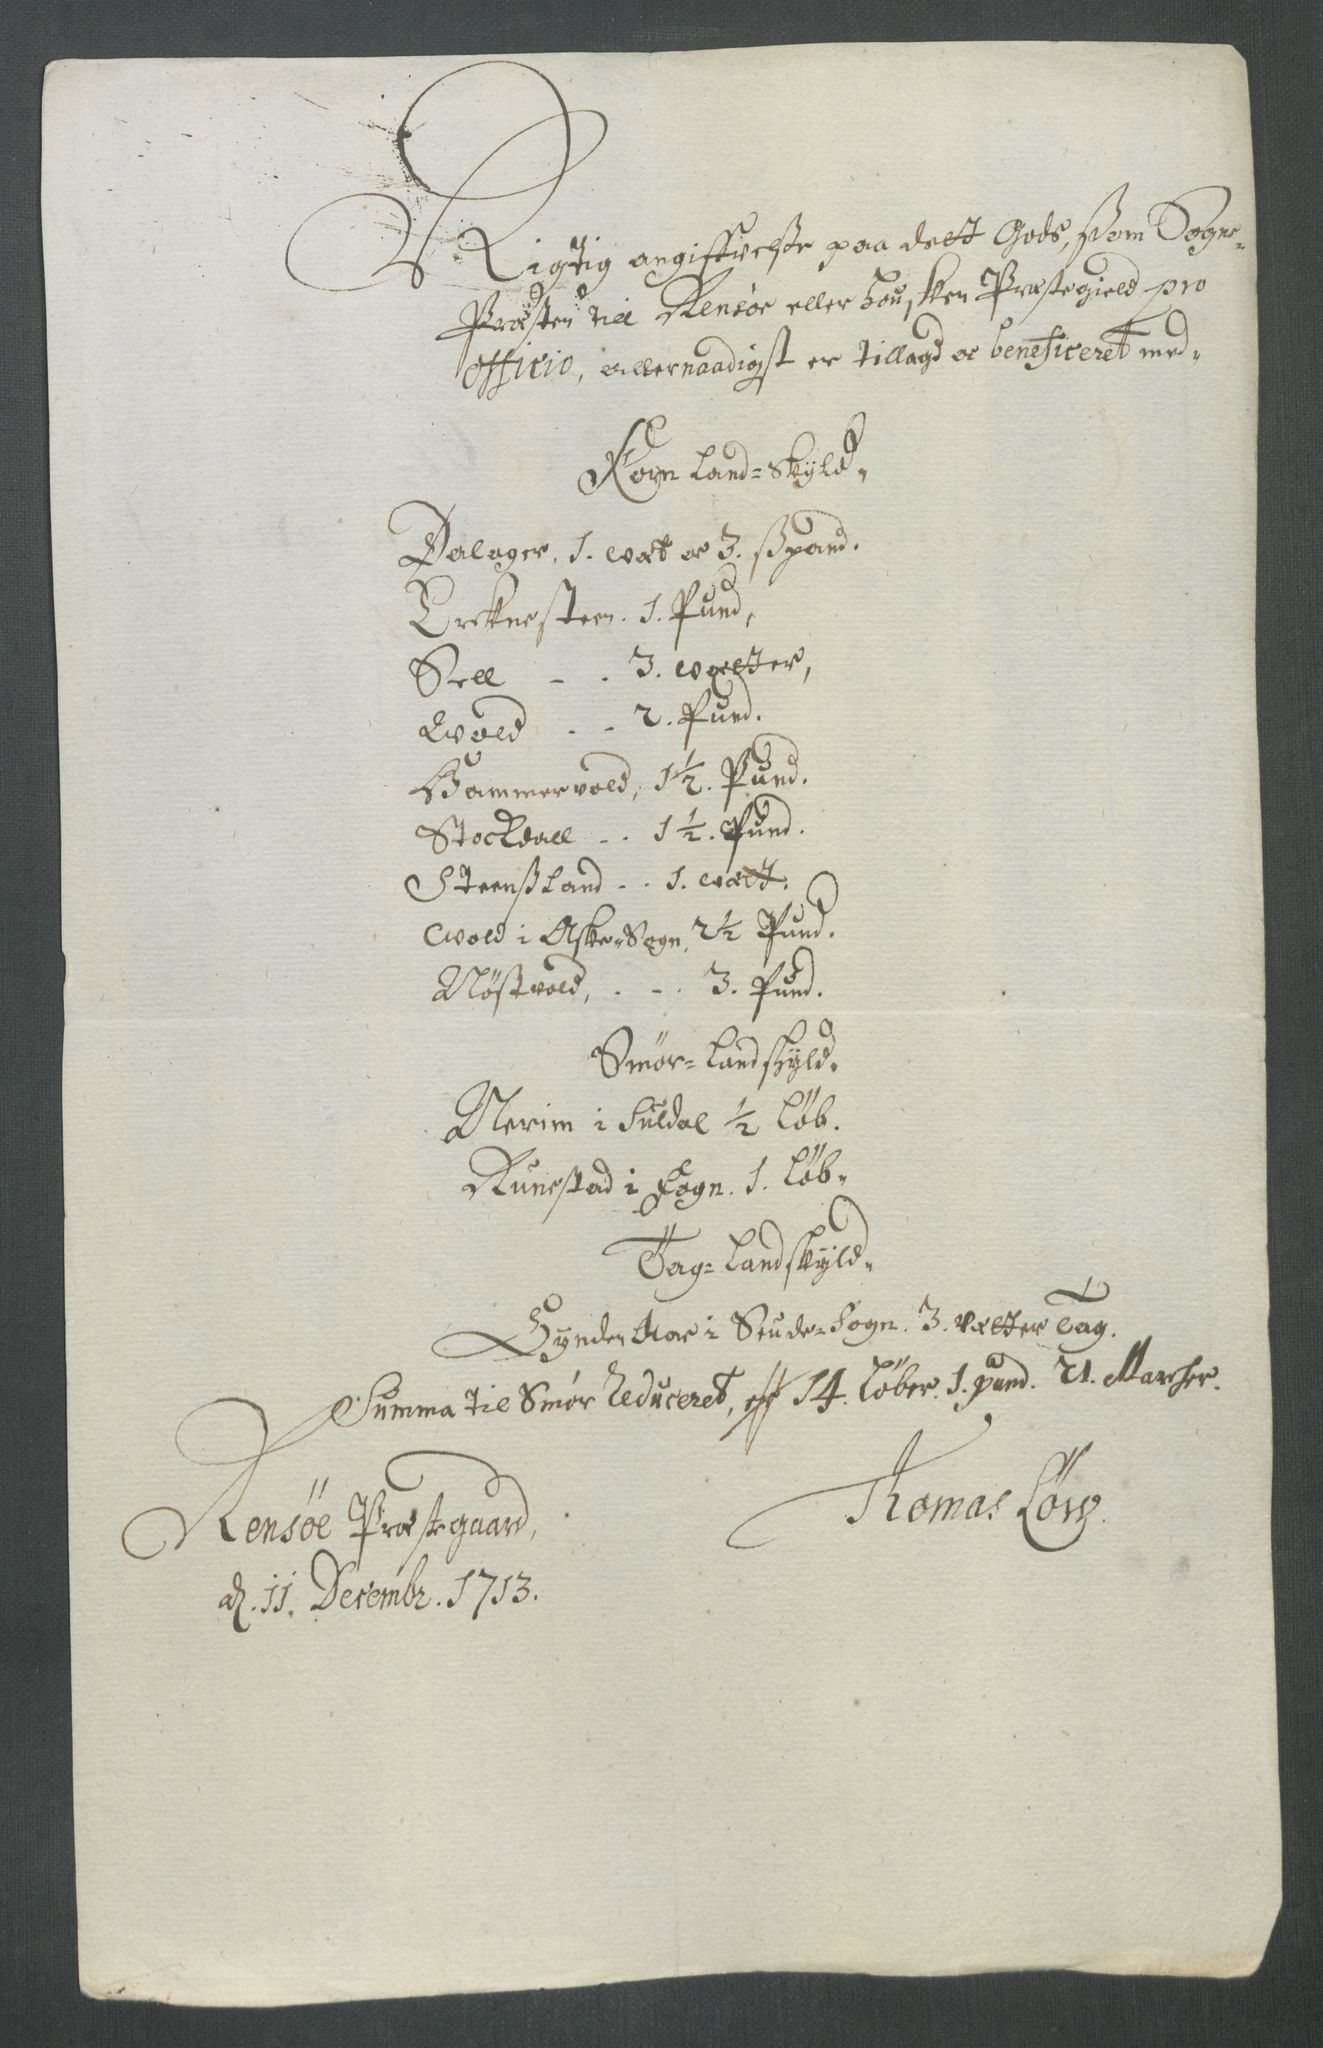 Rigtig angiffvelße paa dett Gods, ßom Sogne-
Præsten till Rensöe eller Housken Præstegield pro
officio, allernaadigst er tillagd oc beneficeret med-
Korn Land=Skyld-
Dalager. 1. wæt oc 3. ßpand.
Ercknesteen. 1. Pund,
Sell - . 3. wætter,
Qvold . . 2. Pund.
Hammervold, 1½. Pund.
Stockdall - . 1½. Pund.
Steenßland - . 1. wætt.
Qvold i Aske-Sogn, 2½ Pund.
Nöstvold, . - . 3. Pund.
Smör=Landskyld.
Nerim i Suldal ½ Löb.
Runestad i Sogn. 1. Löb-
Tag=Landskyld-
i Skude-Sogn. 3. Vætter Tag.
Summa til Smör Reduceret, er 14. Löber. 1. pund. 21. Marcher.
Rensöe Præstegaard,
d. 11. Decembr. 1713.
Thomas Löw.